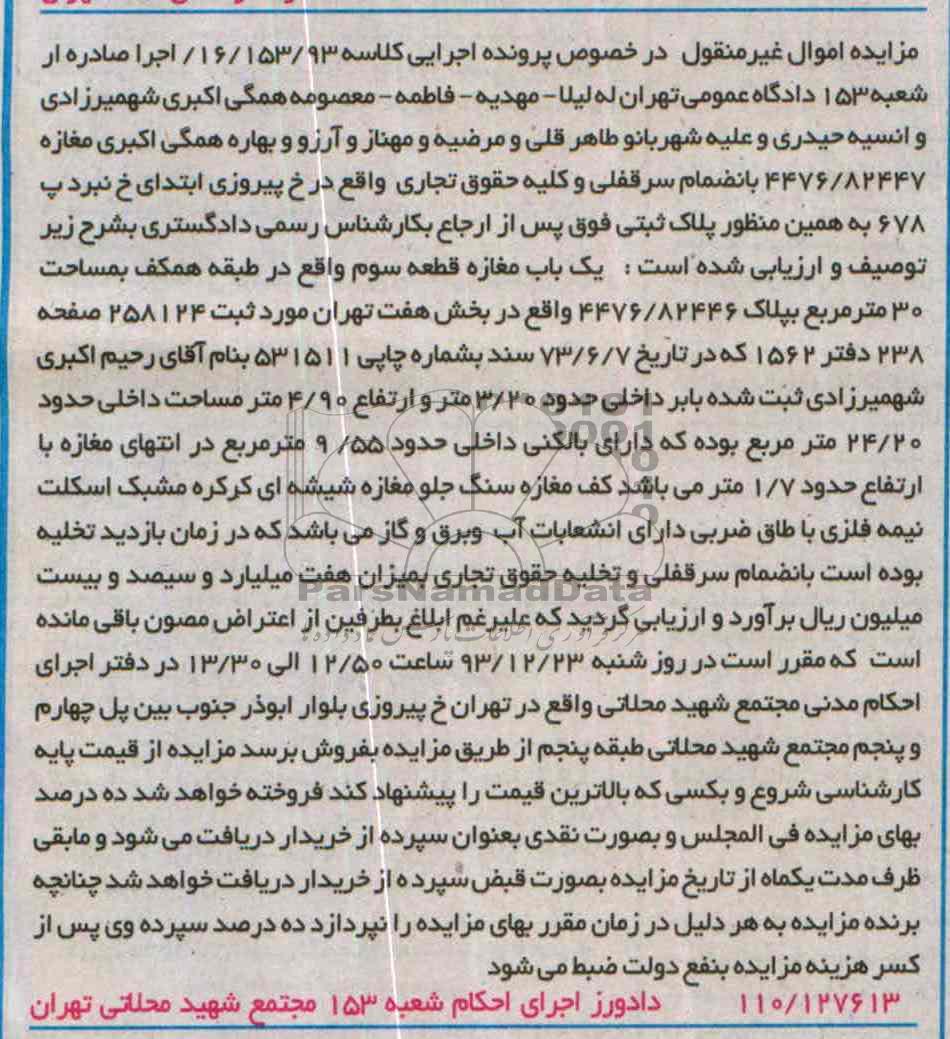 مزایده اموال غیرمنقول در خصوص پرونده اجرایی کلاسه ۱۶/۱۵۳/۹۳/ اجرا صادره از
شعبه ۱۵۳ دادگاه عمومی تهران له لیلا - مهدیه - فاطمه - معصومه همگی اکبری شهمیرزادی
و انسیه حیدری و علیه شهربانو طاهر قلی و مرضیه و مهناز و آرزو و بهاره همگی اکبری مغازه
۴۴۷۶/۸۲۴۴۷ بانضمام سرقفلی و کلیه حقوق تجاری واقع در خ پیروزی ابتدای خ نبرد پ
۶۷۸ به همین منظور پلاک ثبتی فوق پس از ارجاع بکارشناس رسمی دادگستری بشرح زیر
توصیف و ارزیابی شده است : یک باب مغازه قطعه سوم واقع در طبقه همکف بمساحت
۳۰ مترمربع بپلاک ۴۴۷۶/۸۲۴۴۶ واقع در بخش هفت تهران مورد ثبت ۲۵۸۱۲۴ صفحه
۲۳۸ دفتر ۱۵۶۲ که در تاریخ ۷۳/۶/۷ سند بشماره چاپی ۵۳۱۵۱۱ بنام آقای رحیم اکبری
شهمیرزادی ثبت شده بابر داخلی حدود ۳/۲۰ متر و ارتفاع ۴/۹۰ متر مساحت داخلی حدود
۲۴/۲۰ متر مربع بوده که دارای بالکنی داخلی حدود ۹/۵۵ مترمربع در انتهای مغازه با
ارتفاع حدود ۱/۷ متر می باشد کف مغازه سنگ جلو مغازه شیشه ای کرکره مشبک اسکلت
نیمه فلزی با طاق ضربی دارای انشعابات آب وبرق و گاز می باشد که در زمان بازدید تخلیه
بوده است بانضمام سرقفلی و تخلیه حقوق تجاری بمیزان هفت میلیارد و سیصد و بیست
میلیون ریال برآورد و ارزیابی گردید که علیرغم ابلاغ بطرفین از اعتراض مصون باقی مانده
است که مقرر است در روز شنبه ۹۳/۱۲/۲۳ ساعت ۱۲/۵۰ الی ۱۳/۳۰ در دفتر اجرای
احکام مدنی مجتمع شهید محلاتی واقع در تهران خ پیروزی بلوار ابوذر جنوب بین پل چهارم
و پنجم مجتمع شهید محلاتی طبقه پنجم از طریق مزایده بفروش برسد مزایده از قیمت پایه
کارشناسی شروع و بکسی که بالاترین قیمت را پیشنهاد کند فروخته خواهد شد ده درصد
بهای مزایده فی المجلس و بصورت نقدی بعنوان سپرده از خریدار دریافت می شود و مابقی
ظرف مدت یکماه از تاریخ مزایده بصورت قبض سپرده از خریدار دریافت خواهد شد چنانچه
برنده مزایده به هر دلیل در زمان مقرر بهای مزایده را نپردازد ده درصد سپرده وی پس از
کسر هزینه مزایده بنفع دولت ضبط می شود
۱۱۰/۱۲۷۶۱۳ دادورز اجرای احکام شعبه ۱۵۳ مجتمع شهید محلاتی تهران
ParsNamadData